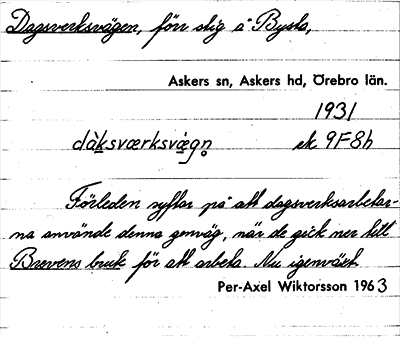 Dagsverksvägen, förr stig å Bysta,
Askers sn, Askers hd, Örebro län.
1931
dàksværksvægn̥ ek 9F8h
Förleden syftar på att dagsverksarbetar-
na använde denna genväg, när de gick ner till
Brevens bruk för att arbeta. Nu igenväxt
Per-Axel Wiktorsson 1963